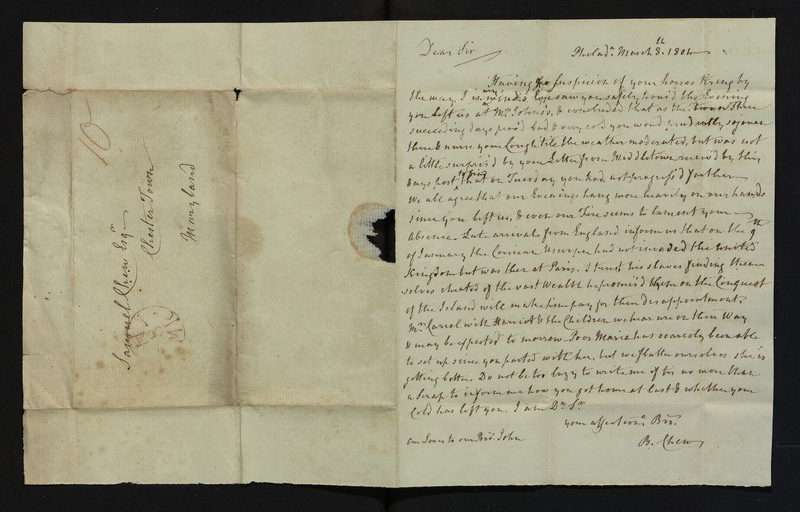 10
Samuel Chew Esqr.
Chester Town
Maryland
Dear Sir
Philada. March 8th. 1804
Having no suspicion of your horses tiring by
the way, I
saw you safely hous'd the Evening
you left us at Mr. John's, & concluded that as the two or three
succeeding days prov'd bad & very cold you would prudently sojourn
there & nurse your Cough till the weather moderated, but was not
a little surpris'd by your Letter from Middletown receiv'd by this
days post to find that on Tuesday you had not progress'd farther
We all agree that our Evenings hang more heavily on our hands
since you left us, & even our Fire seems to lament your
Absence. Late arrivals from England inform us that on the 9th
of January the Corsican Usurper had not invaded the United
Kingdom but was then at Paris. I trust his slaves finding them
selves cheated of the vast Wealth he promis'd them on the Conquest
of the Island will make him pay for their disappointment.
Mrs. Carrol with Harriot & the Children we hear are on their Way
& may be expected to morrow. Poor Maria has scarcely been able
to set up since you parted with her, but we flatter ourselves she is
getting better. Do not be too lazy to write me if it is no more than
a Scrap to inform me how you got home at last & whether your
Cold has left you. I am Dr. Sr.
your affectiona. Bror.
B. Chew
our Love to our Bror. John